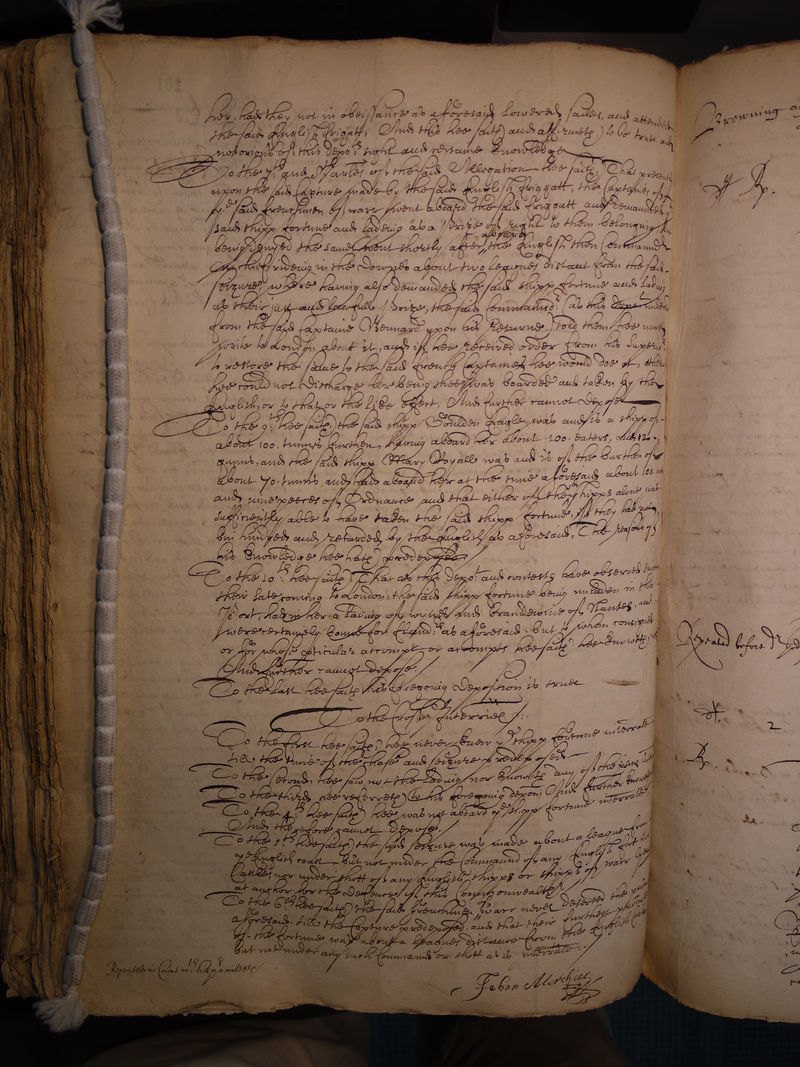 her, had they not in obeissance as aforesaid lowered sailes, and attended
the said English frigatt, And this hee saith and affirmeth to be true and
notorious of this depo:ts sight and certaine knowledge
To the 7th and 8th articles of the said Allegation hee saith, That presently
upon the said Capture made by the said English friggatt, the Captaines of
ye said frenchmen of warr went aboard the said friggatt and demanded ye
said shipp fortune and Lading as a Prize of right to them belonging
being denyed the same, went shortly after aboard the English then Commander
in cheife rideing in the Downes about two leagues distant from the said
seizure, where having also demanded the said shipp fortune and Lading
as their just and lawfull Prize, the said Commander (as this depo:t understood
from the said Captaine Bennard upon his Returne) told them hee must
write to London about it, and if hee received order from his Superiors
to restore the same to the said french Captaines hee would doe it, otherwise
hee could not discharge her being shee was boarded and taken by the
English, or to that or the like effect, And further cannot depose
To the 9th hee saith the said shipp Goulden Eagle was and is a shipp of
about 100. tunns burthen, having aboard her about 100. eaters, and 12
gunns, and the said shipp Mary Royall was and is of the burthen of
about 70. tunns, and had aboard her at the time aforesaid about
and nine peeces of Ordnance and that either of the shipps alone was
sufficiently able to have taken the said shipp fortune, if they had not
bin hindred and retarded by the English as aforesaid, The reasons of
his knowledge hee hath predeposed
To the 10th hee saith, That as this depo:t and contests have observed
their late coming to London, the said shipp fortune being unladen in this
Port, had in her a lading of wynes and brandewine of Nantes, and
were certainely bound for as aforesaid, but to whom consigned
or for whose particular accompt, or accompts hee saith hee knoweth not
And further cannot depose
To the last hee saith his foregoing deposition is true
To the Crosse Interries /:
To the first hee saith hee never knew ye shipp fortune interrate
till the time of the chase and seizure predeposed
To the second, hee saw not the Lading nor knoweth any of the
To the third, hee referreth to his foregoing depon, And further knoweth
To the 4th hee saith hee was not aboard ye shipp fortune interrate
And therefore cannot depose
To the 5th hee saith the said seizure was made about a league from
ye English coast, but not under the Command of any English fort or
Castle, nor under shott of any English shipps or shipps of warr lying
at anchor for the defence of this Commonwealth
To the 6th hee saith the said frenchmen of warr never deserted the
aforesaid, till the Capture predeposed, and that their furthest
of the fortune was about a leagues distance from the English
but not under any such Command or shott as is interrate
Repeated in Court
Jehan
Browning
Repeated before Dr
2